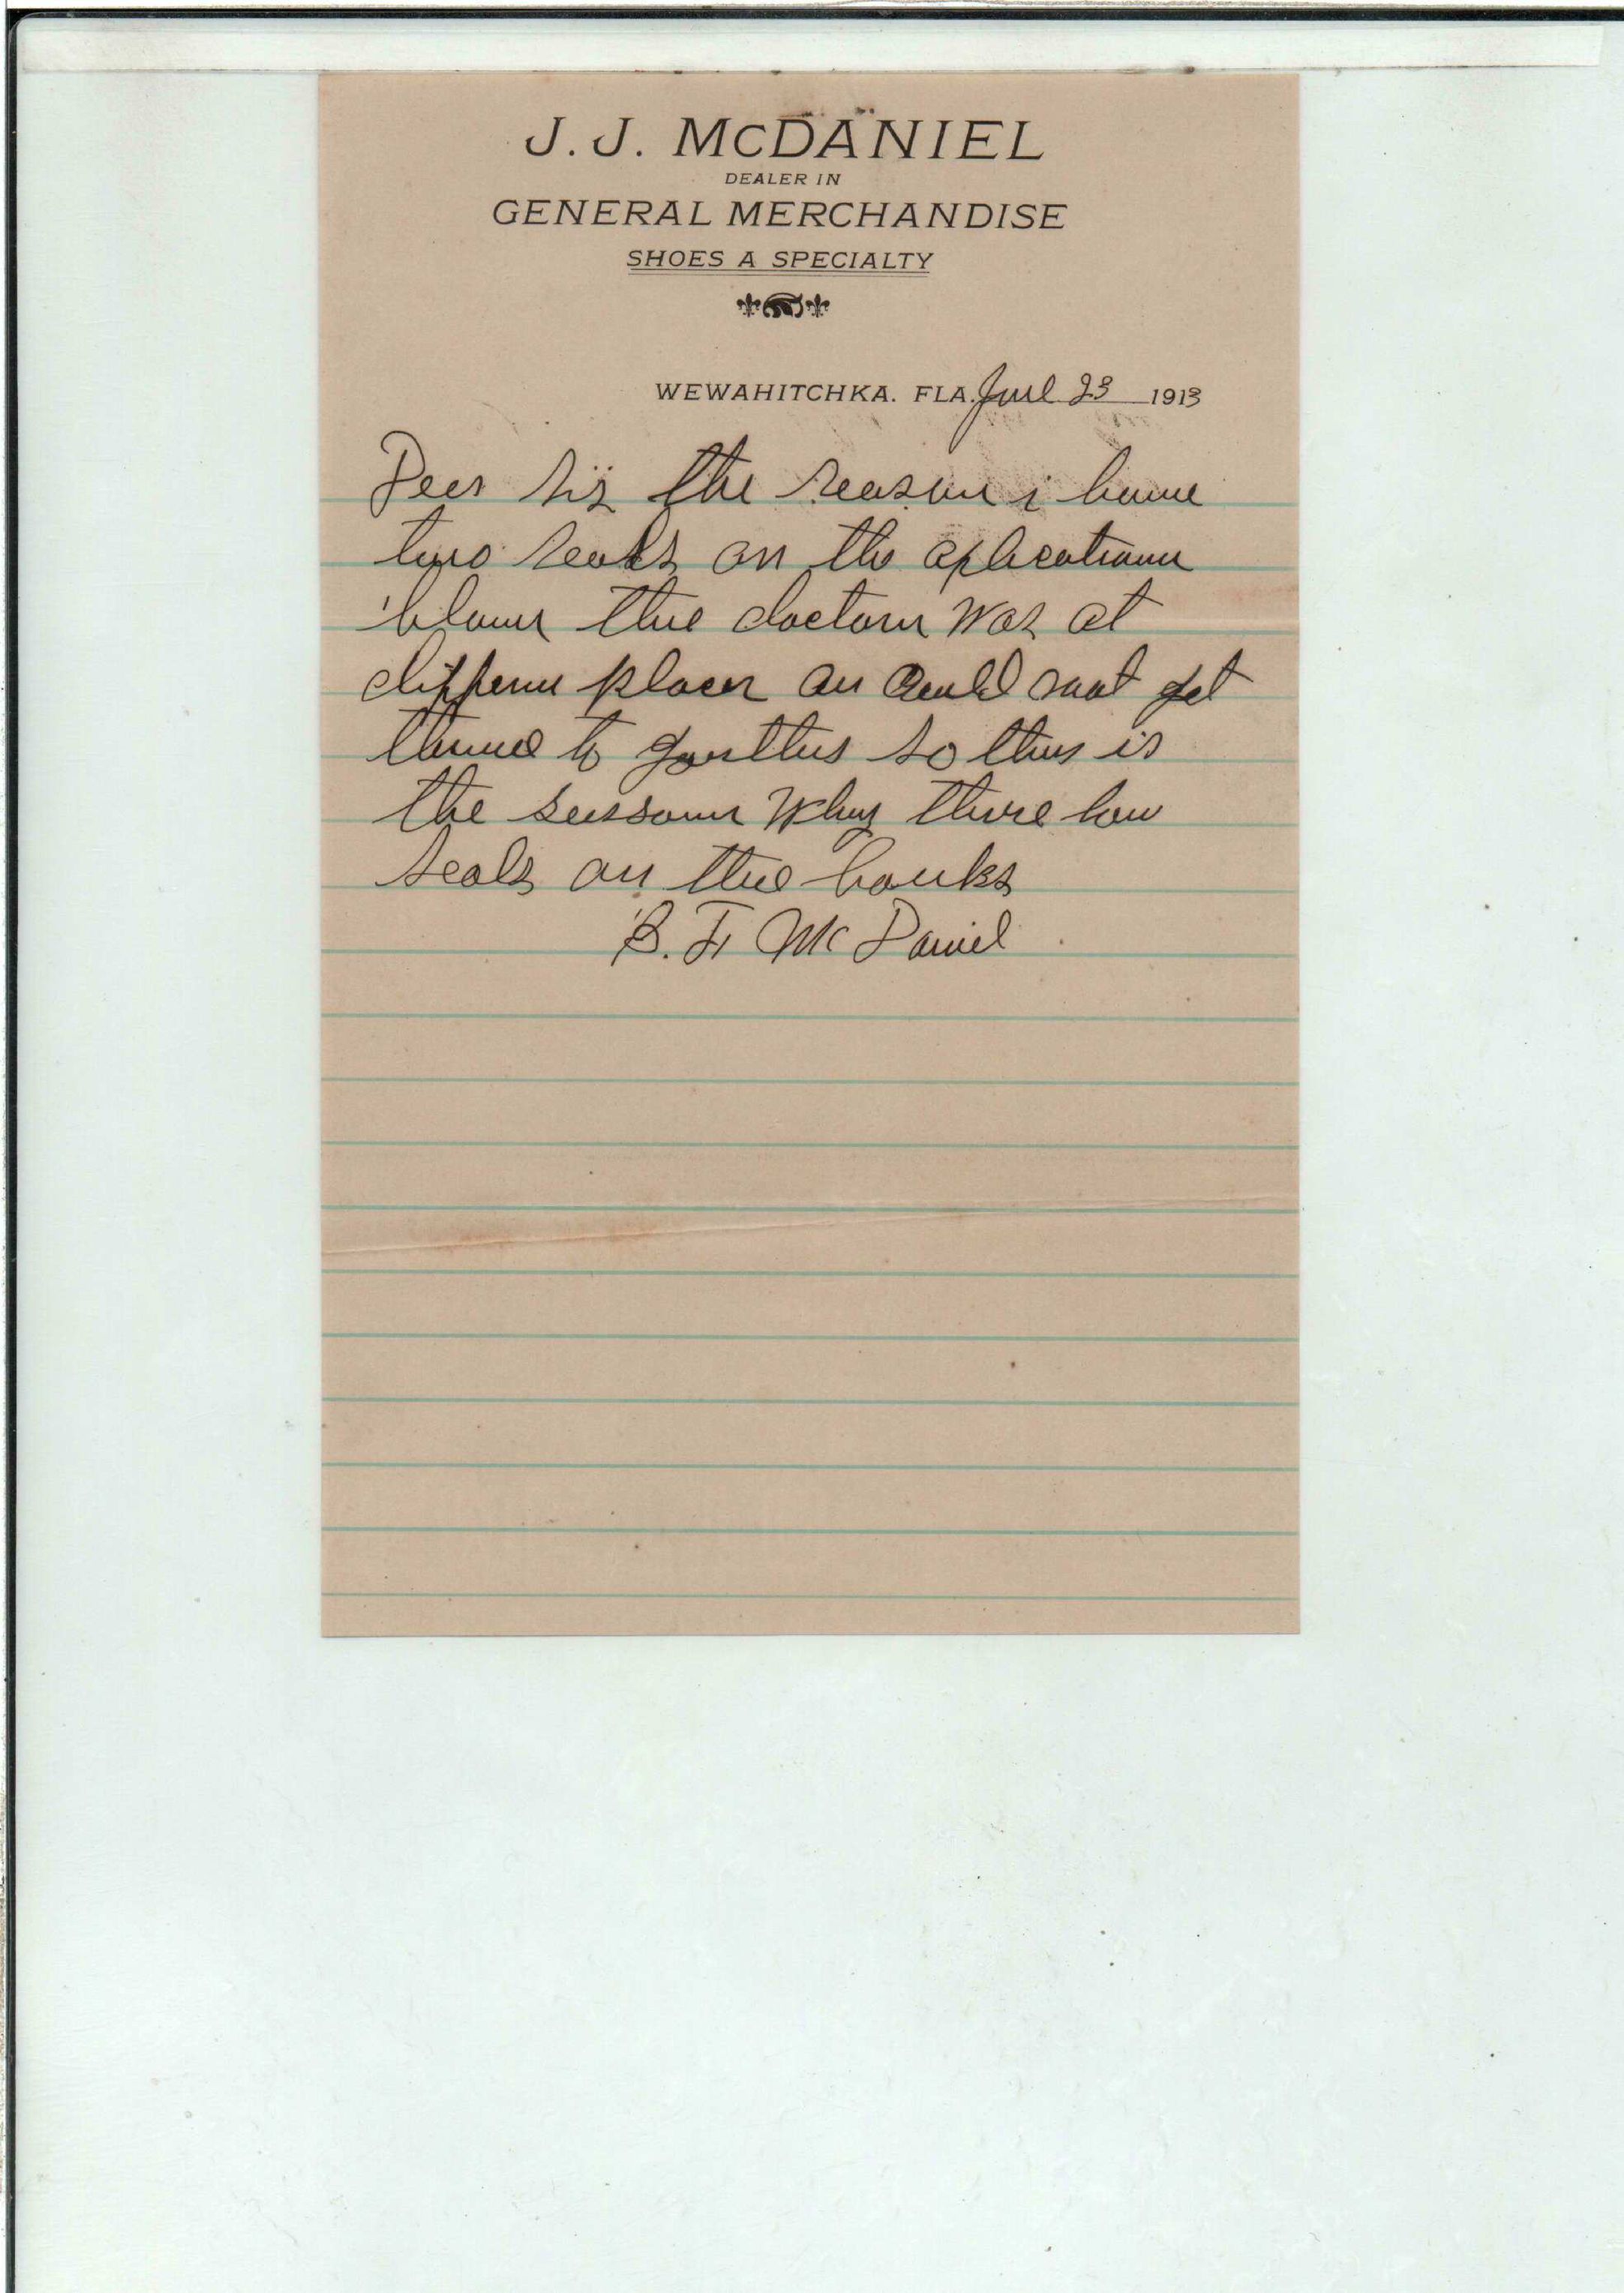 J. J. McDANIEL
DEALER IN
GENERAL MERCHANDISE
SHOES A SPECIALTY
WEWAHITCHKA. FLA. 23 1913
Deer Sir the reason i have
two seals on the aplication
the doctorn was at
place an could not get
to so this is
the why there
seals on the
B. F. McDaniel